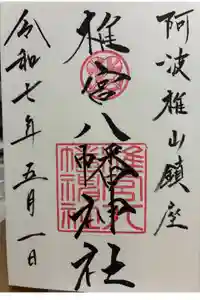 阿波椎山鎮座
椎宮八幡神社
令和七年五月一日